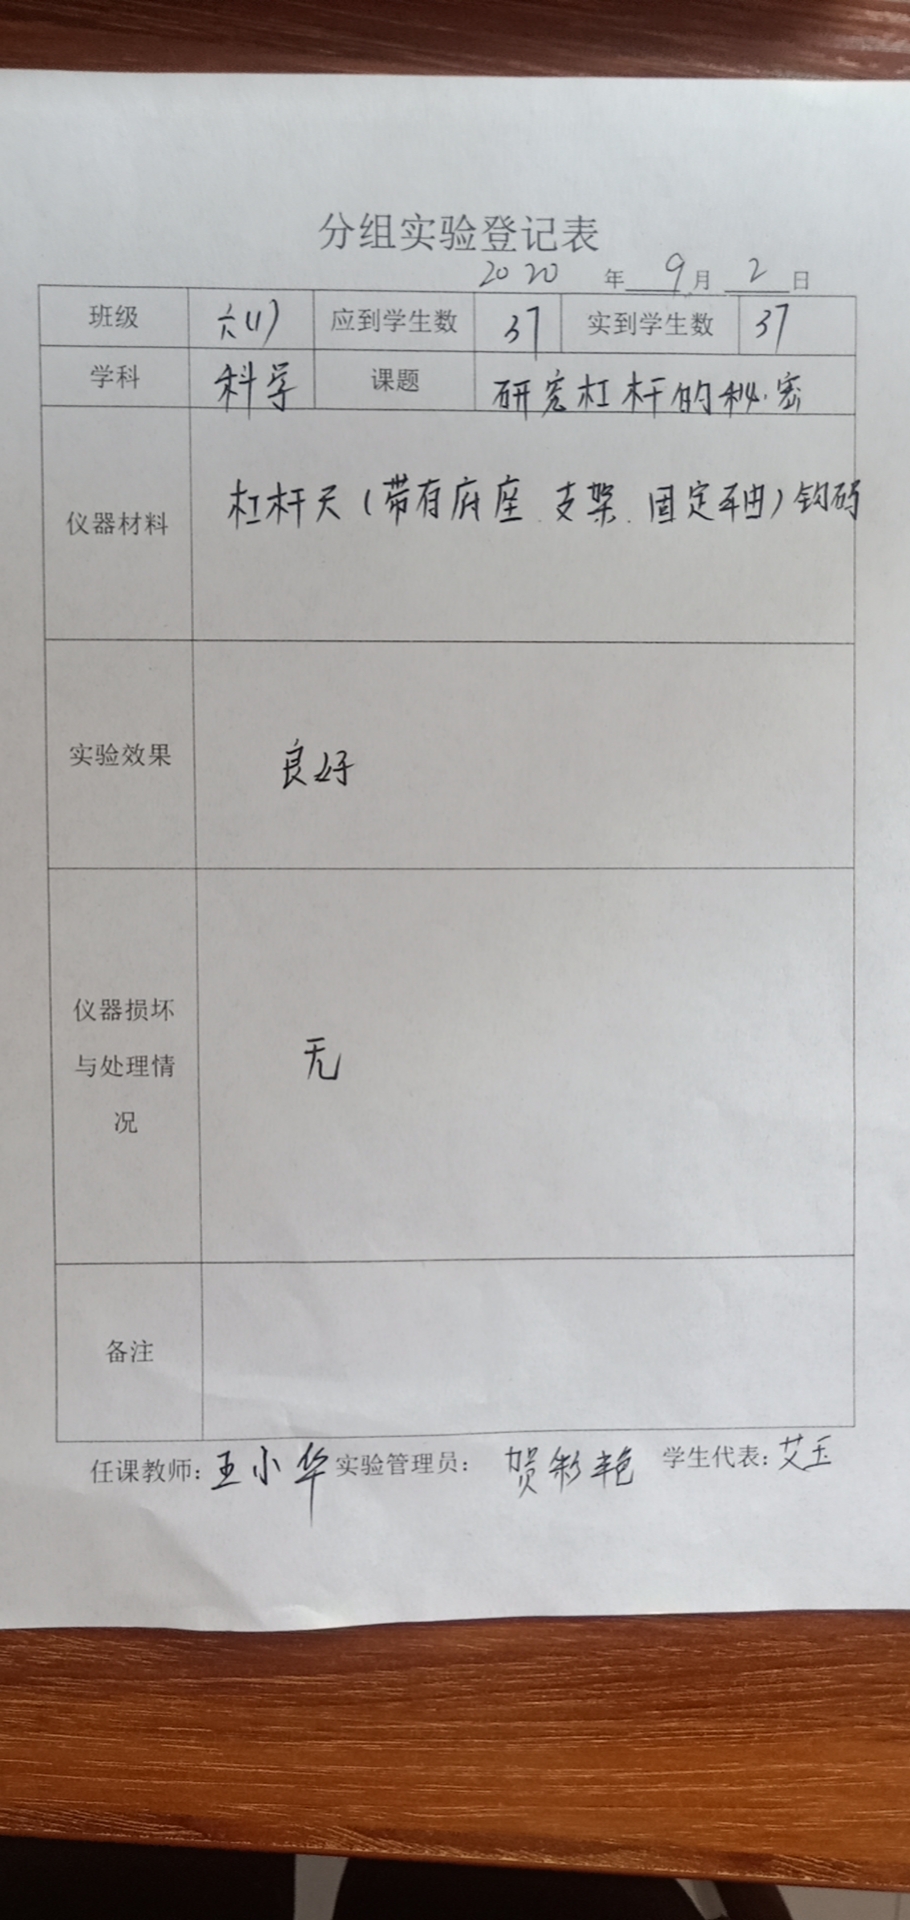 分组实验登记表
2020 年 9 月 2 日
班级 六(1) 应到学生数 37 实到学生数 37
学科 科学 课题 研究杠杆的秘密
仪器材料 杠杆尺(带有府座、支架、固定轴)钩码
实验效果 良好
仪器损坏
与处理情
况
无
备注
任课教师: 王小华 实验管理员: 贺彩艳 学生代表: 艾玉